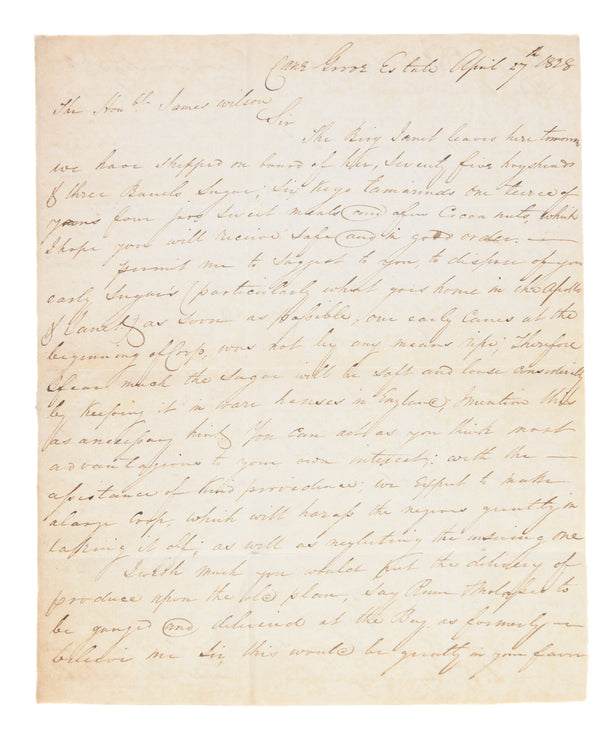 Cane Grove Estate April 27th 1828
The Honble James Wilson
Sir
The Brig Janet leaves here tomorrow
we have shipped on board of her, Seventy five hogsheads
& three Barrels Sugar; Six Kegs Tamarinds one teirce of
yams four jars Sweet meats and a few Cocoa nuts, which
I hope you will receive safe and in good order. —
Permit me to suggest to you, to dispose of your
early Sugars (particularly what goes home in the Apollo
& Janet) as soon as possible, our early Canes at the
beginning of Crop, was not by any means ripe; Therefore
I fear much the Sugar will be soft and loose considerably
by keeping it in ware houses in England, I mention this
as a necessary hint, You can act as you think most
advantagious to your own interest; with the —
assistance of kind providence; we expect to make
a large Crop, which will harass the negroes greatly in
taking it off; as well as neglecting the ensuing one
I wish much you would put the delivery of
produce upon the old plan, Say Rum & Molasses to
be gauged and delivered at the Bay as formerly —
believe me Sir, this would be greatly in your favor